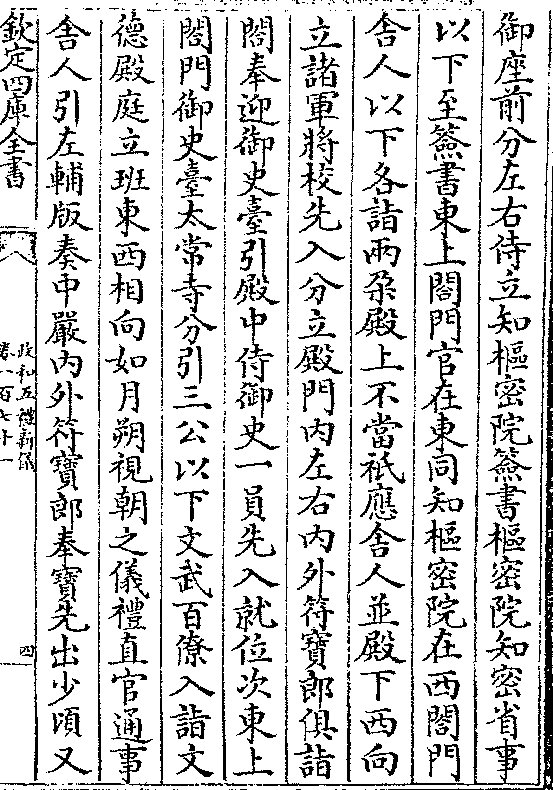 御座前分左右侍立知樞密院簽書樞密院知密省事
以下至簽書東上閤門官在東同知樞密院在西閤門
舎人以下各詣兩朶殿上不當祗應舎人並殿下西向
立諸軍將校先入分立殿門内左右内外符寳郎俱詣
閤奉迎御史臺引殿中侍御史一員先入就位次東上
閤門御史臺太常寺分引三公以下文武百僚入詣文
德殿庭立班東西相向如月朔視朝之儀禮直官通事
舎人引左輔版奏中嚴内外符寳郎奉寳先出少頃又
欽定四庫全書
政和五禮新儀
卷一百七十一
四